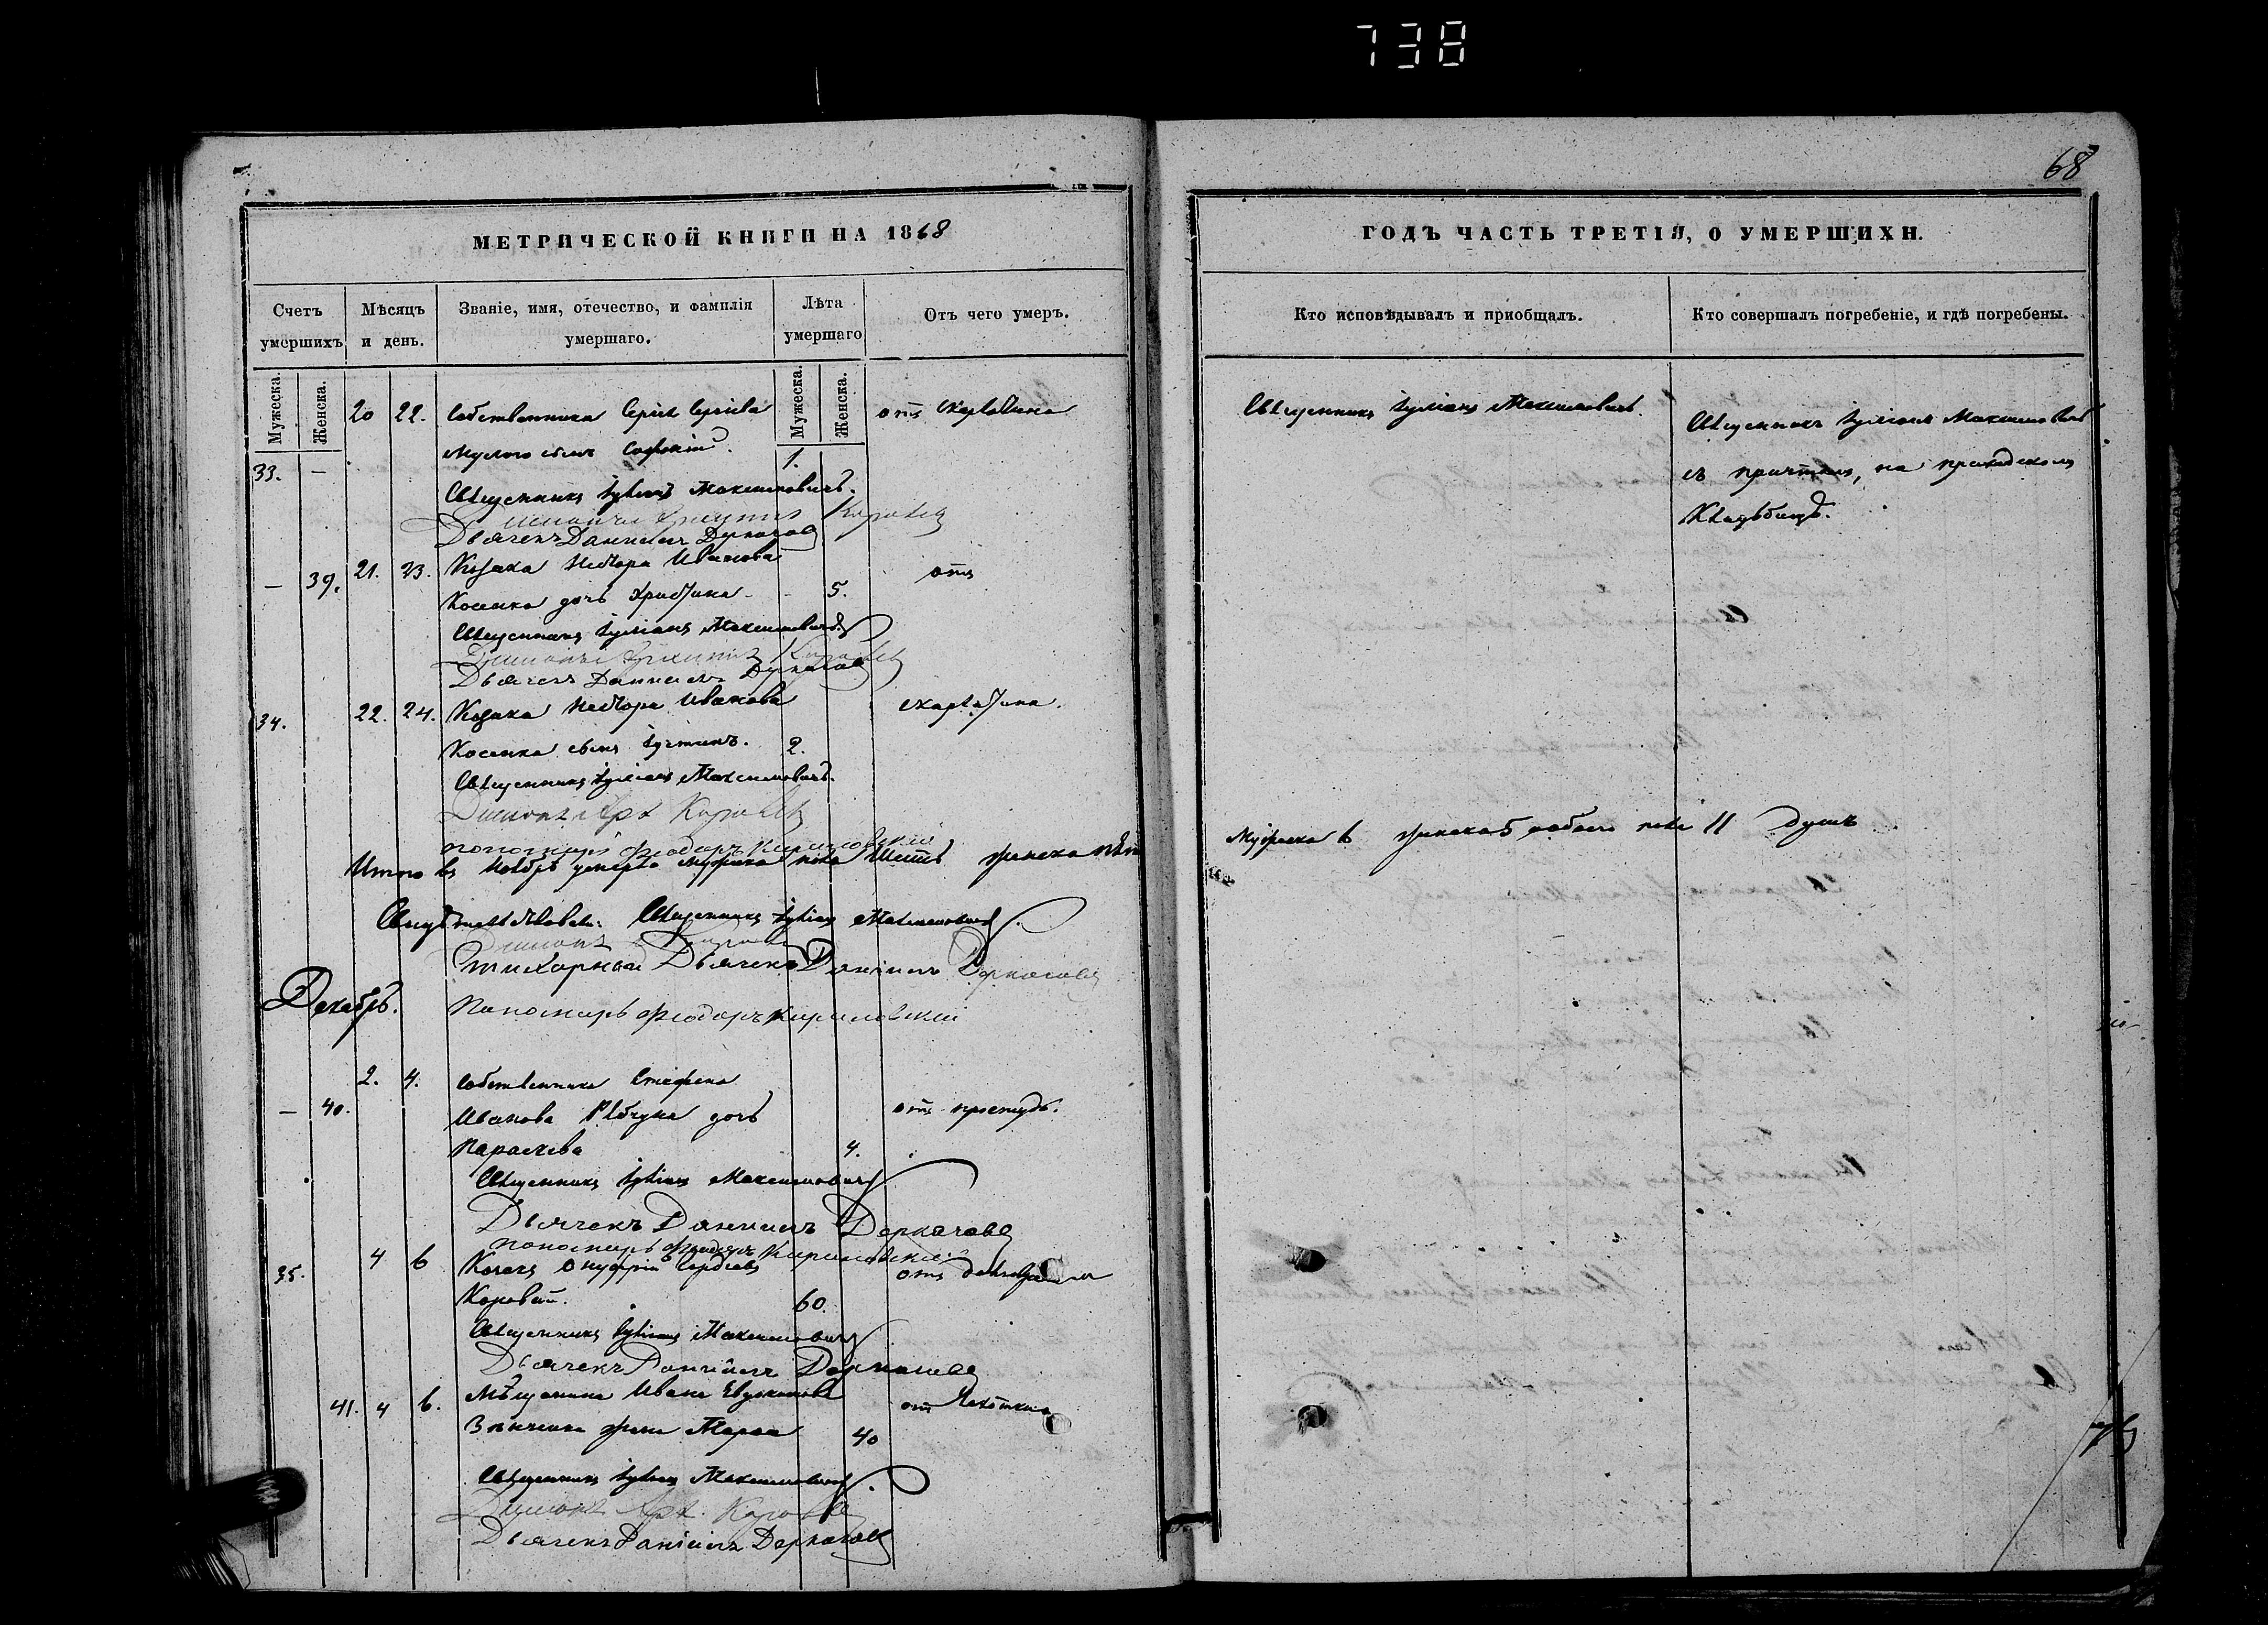 738
68
МЕТРИЧЕСКОЙ КНИГИ НА 1868
Счетъ умершихъ
Мѣсяцъ и день.
Званіе, имя, отечество, и фамилія умершаго.
Лѣта умершаго
Отъ чего умеръ.
Мужеска.
Женска.
Мужеска.
Женска.
20 22. Собственника Сергія Сергіева отъ скарлатина
33. – сынъ 1.
Священникъ Іуліанъ Максимовичъ.
Дьячекъ Данніилъ Деркачовъ
– 39. 21. 23. Козака Нестора Иванова отъ
Косенка дочь Христина 5.
Священникъ Іуліанъ Максимовичъ
Дьячекъ Данніилъ Деркачовъ
34. 22. 24. Козака Нестора Иванова скарлатина.
Косенка сынъ Іустинъ. 2.
Священникъ Іуліанъ Максимовичъ.
Діаконъ Арх Коро
пономарь Феодоръ Кириловскій
Итого въ Ноябрѣ умерло мужеска пола шесть женска пять
Свидѣтельствовали: Священникъ Іуліанъ Максимовичъ
Стихарный Дьячекъ Даніилъ Деркачовъ
Декабрь. Пономарь Феодоръ Кириловскій
2. 4. Собственника Стефана
– 40. Иванова Рябчуна дочь отъ простуды.
Параскева 4.
Священникъ Іуліанъ Максимовичъ
Дьячекъ Данніилъ Деркачовъ
пономарь Феодоръ Кириловскій
35. 4 6 Козакъ Онуфрій отъ
Коровай. 60.
Священникъ Іуліанъ Максимовичъ
Дьячекъ Данніилъ Деркачовъ
41. 4 6. Мѣщанина Ивана Евдокимова отъ Чахотки
жена Марѳа 40
Священникъ Іуліанъ Максимовичъ.
Діаконъ Арх.
Дьячекъ Даніилъ Деркачовъ
ГОДЪ ЧАСТЬ ТРЕТІЯ, О УМЕРШИХЪ.
Кто исповѣдывалъ и пріобщалъ.
Кто совершалъ погребеніе, и гдѣ погребены.
Священникъ Іуліанъ Максимовичъ.
Священникъ Іуліанъ Максимовичъ
съ причтомъ, на приходскомъ
Кладбищѣ.
Мужеска 6 женска 5 обоего пола 11 душъ